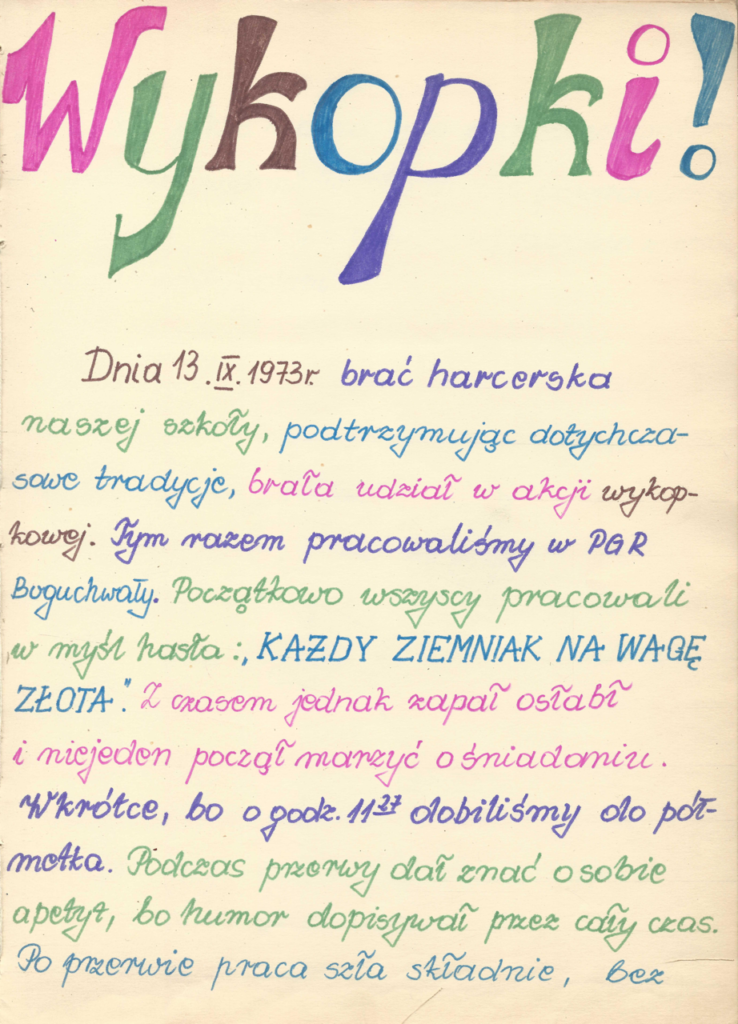 Wykopki!
Dnia 13.IX.1973r. brać harcerska
naszej szkoły, podtrzymując dotychcza-
sowe tradycje, brała udział w akcji wykop-
kowej. Tym razem pracowaliśmy w PGR
Boguchwały. Początkowo wszyscy pracowali
w myśl hasła :„KAŻDY ZIEMNIAK NA WAGĘ
ZŁOTA”. Z czasem jednak zapał osłabł
i niejeden począł marzyć o śniadaniu.
Wkrótce, bo o godz. 11²⁷ dobiliśmy do pół-
metka. Podczas przerwy dał znać o sobie
apetyt, bo humor dopisywał przez cały czas.
Po przerwie praca szła składnie, bez